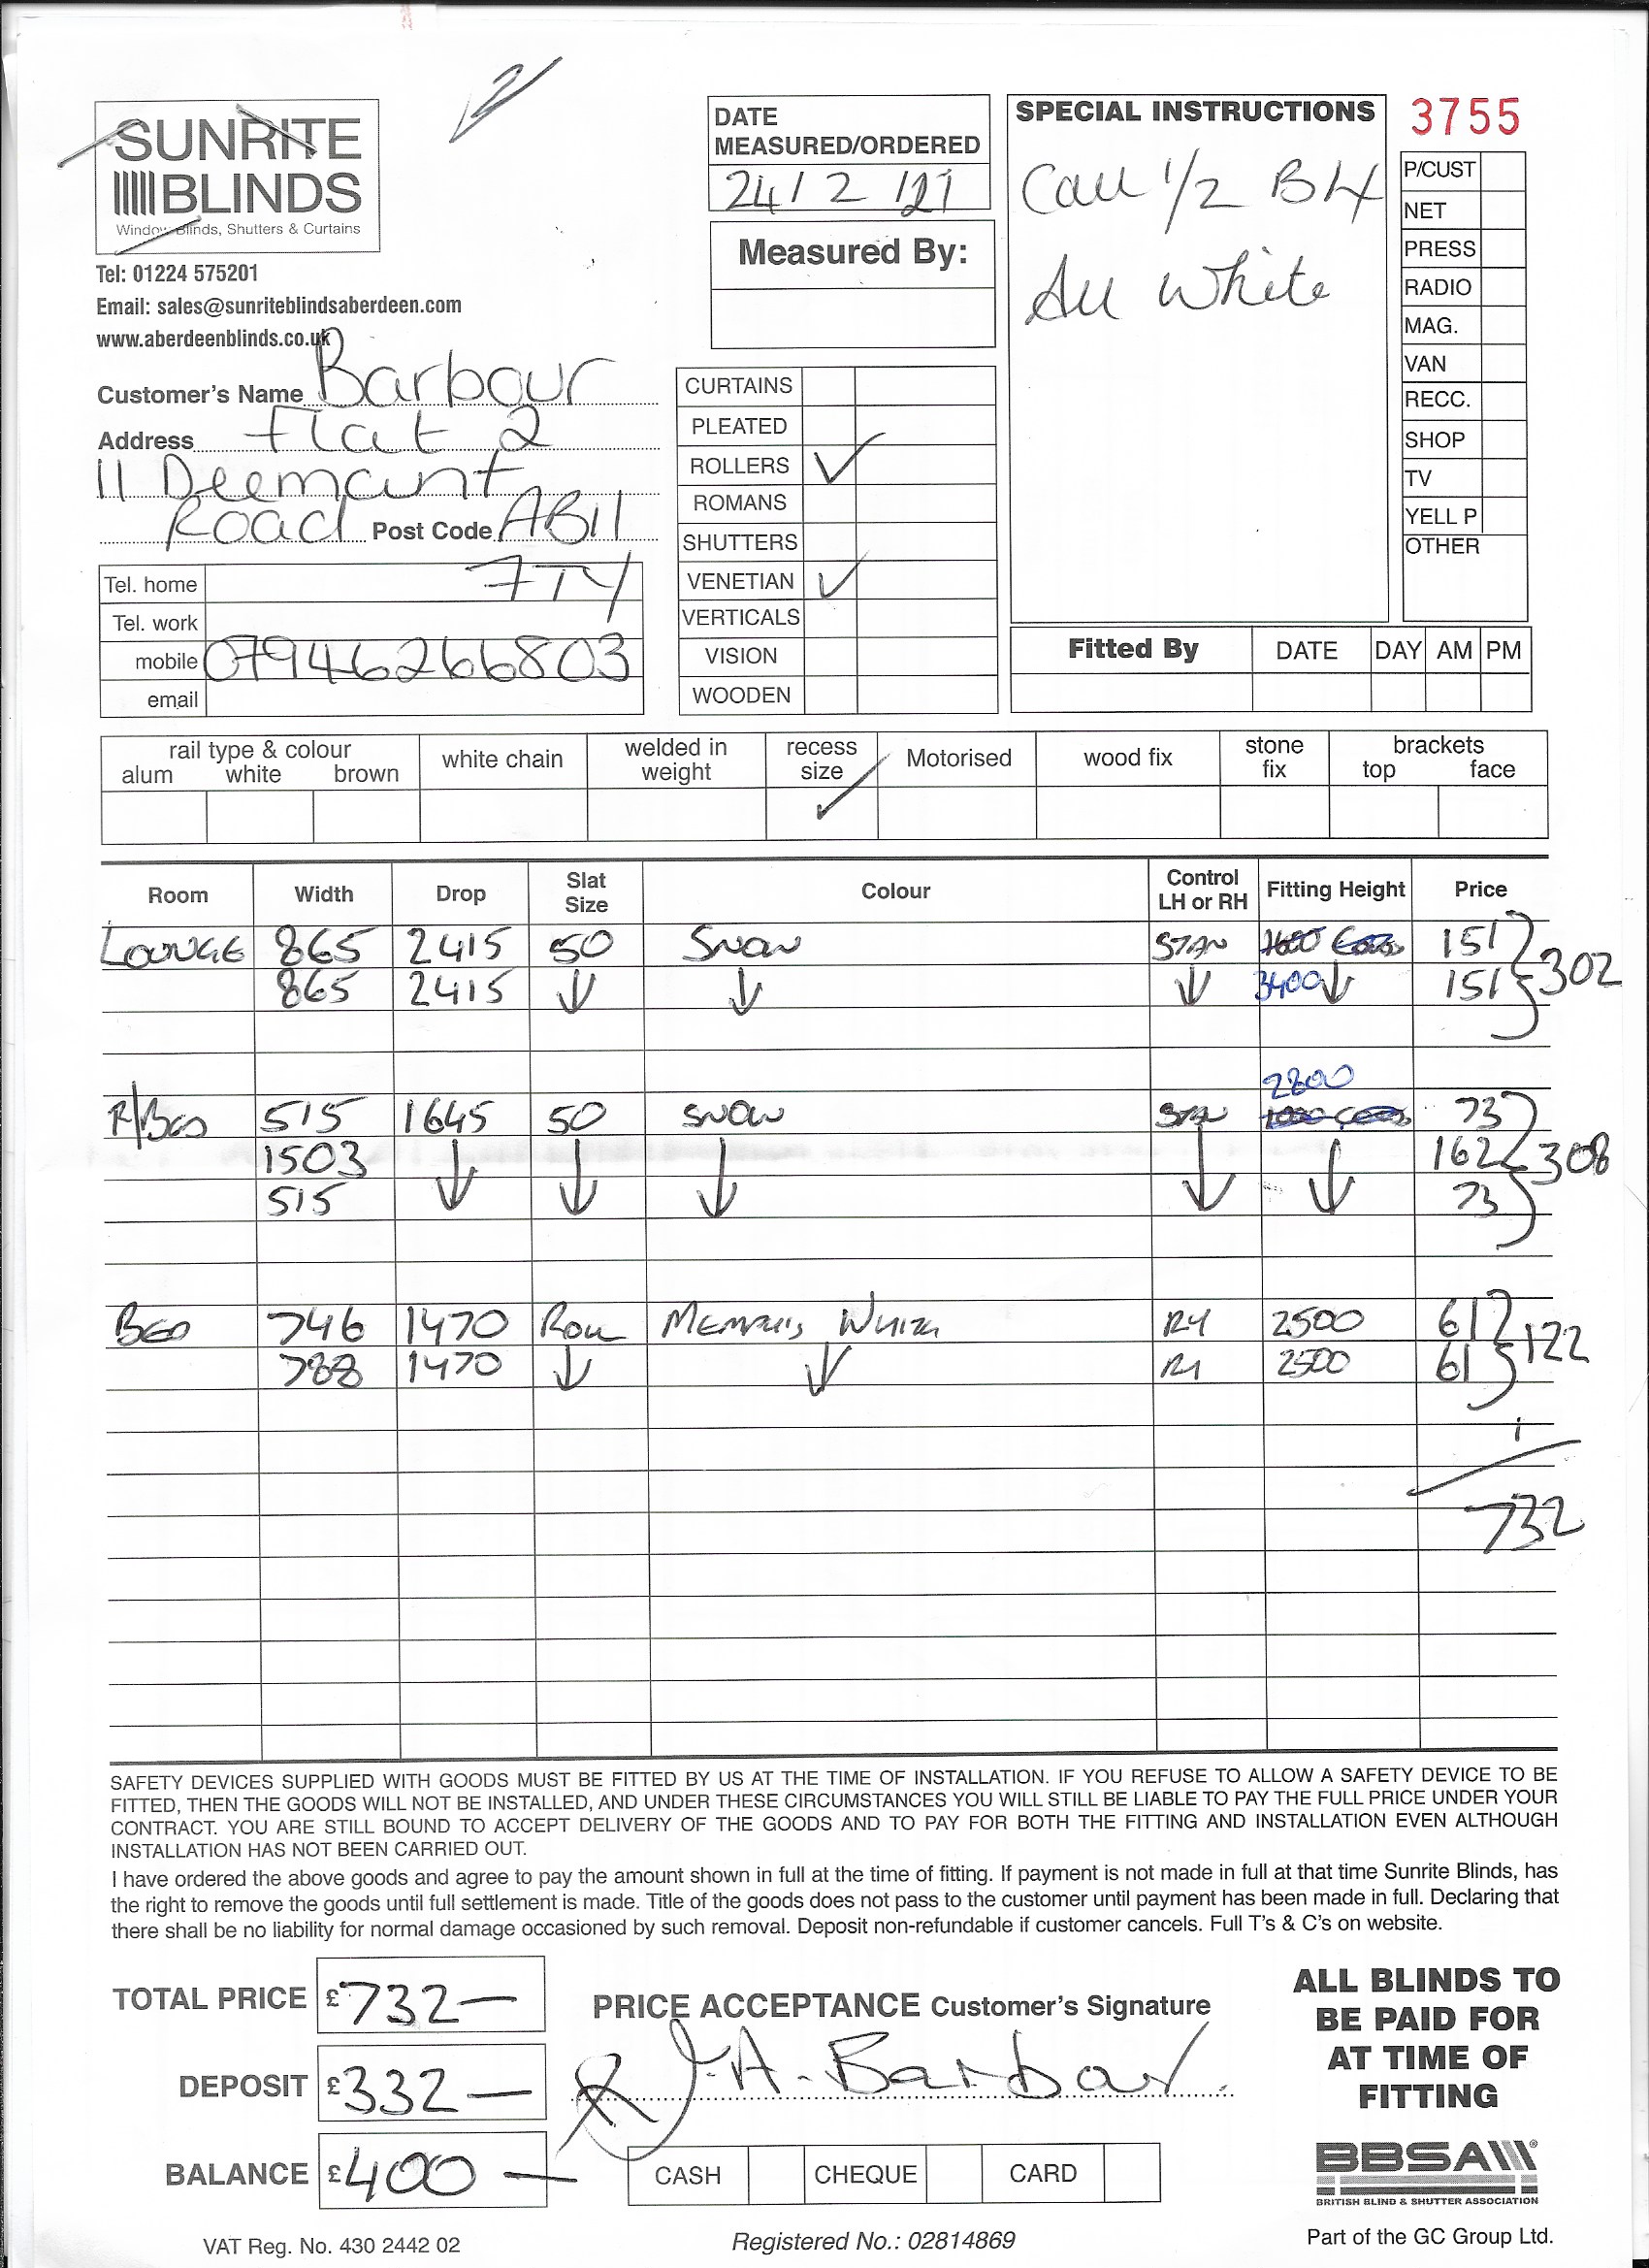 SUNRITE
BLINDS
Window Blinds, Shutters & Curtains
Tel: 01224 575201
Email: sales@sunriteblindsaberdeen.com
www.aberdeenblinds.co.uk
Customer's Name Barbour
Address Flat 2
11 Deemount
Road Post Code AB11
7TY
Tel. home
Tel. work
mobile 07946266803
email
DATE
MEASURED/ORDERED
24/2/21
Measured By:
CURTAINS
PLEATED
ROLLERS ✓
ROMANS
SHUTTERS
VENETIAN ✓
VERTICALS
VISION
WOODEN
SPECIAL INSTRUCTIONS
Call 1/2 B4
All White
3755
P/CUST
NET
PRESS
RADIO
MAG.
VAN
RECC.
SHOP
TV
YELL P
OTHER
Fitted By DATE DAY AM PM
rail type & colour
alum white brown
white chain
welded in
weight
recess
size ✓
Motorised
wood fix
stone
fix
brackets
top face
Room Width Drop Slat Size Colour Control LH or RH Fitting Height Price
LOUNGE 865 2415 50 SNOW STAN 151
865 2415 ↓ ↓ ↓ 3400 ↓ 151 302
2800
F/BED 515 1645 50 SNOW STAN 73
1503 ↓ ↓ ↓ ↓ ↓ 162 308
515 73
BED 746 1470 ROLL MEMPHIS WHITE RH 2500 61
788 1470 ↓ ↓ RH 2500 61 122
732
SAFETY DEVICES SUPPLIED WITH GOODS MUST BE FITTED BY US AT THE TIME OF INSTALLATION. IF YOU REFUSE TO ALLOW A SAFETY DEVICE TO BE
FITTED, THEN THE GOODS WILL NOT BE INSTALLED, AND UNDER THESE CIRCUMSTANCES YOU WILL STILL BE LIABLE TO PAY THE FULL PRICE UNDER YOUR
CONTRACT. YOU ARE STILL BOUND TO ACCEPT DELIVERY OF THE GOODS AND TO PAY FOR BOTH THE FITTING AND INSTALLATION EVEN ALTHOUGH
INSTALLATION HAS NOT BEEN CARRIED OUT.
I have ordered the above goods and agree to pay the amount shown in full at the time of fitting. If payment is not made in full at that time Sunrite Blinds, has
the right to remove the goods until full settlement is made. Title of the goods does not pass to the customer until payment has been made in full. Declaring that
there shall be no liability for normal damage occasioned by such removal. Deposit non-refundable if customer cancels. Full T's & C's on website.
TOTAL PRICE £732—
DEPOSIT £332—
BALANCE £400—
PRICE ACCEPTANCE Customer's Signature
J.A. Barbour
CASH CHEQUE CARD
ALL BLINDS TO
BE PAID FOR
AT TIME OF
FITTING
BBSA
BRITISH BLIND & SHUTTER ASSOCIATION
VAT Reg. No. 430 2442 02
Registered No.: 02814869
Part of the GC Group Ltd.